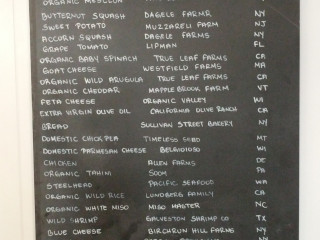 ORGANIC MESCLUN
BUTTERNUT SQUASH DAGELE FARMR NY
SWEET POTATO MUZZARELL FARM NJ
ACCORN SQUASH DAGELE FARMS NY
GRAPE TOMATO LIPMAN FL
ORGANIC BABY SPINACH TRUE LEAF FARMS CA
GOAT CHEESE WESTFIELD FARMS MA
ORGANIC WILD ARUGULA TRUE LEAF FARMS CA
ORGANIC CHEDDAR MAPLE BROOK FARM VT
FETA CHEESE ORGANIC VALLEY WI
EXTRA VIRGIN OLIVE OIL CALIFORNIA OLIVE RANCH CA
BREAD SULLIVAN STREET BAKERY NY
DOMESTIC CHICKPEA TIMELESS FOOD MT
DOMESTIC PARMESAN CHEESE BELGIOIOSO WI
CHICKEN ALLEN FARMS DE
ORGANIC TAHINI SOOM PA
STEELHEAD PACIFIC SEAFOOD WA
ORGANIC WILD RICE LUNDBERG FAMILY CA
ORGANIC WHITE MISO MISO MASTER NC
WILD SHRIMP GALVESTON SHRIMP CO TX
BLUE CHEESE BIRCHRUN HILLS FARM NY